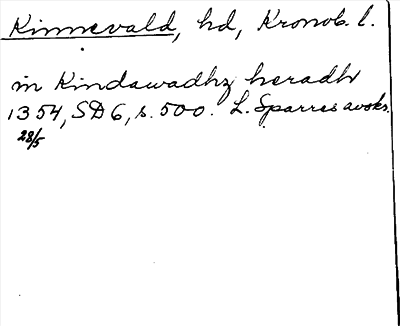 Kinnevald, hd, Kronob. l.
in Kindawadhz heradh
1354, SD 6, s. 500. L. Sparres avskr.
28/5